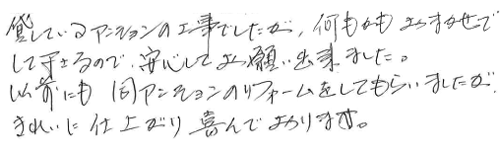 貸しているマンションの工事でしたが、何もかもおまかせで
して下さるので、安心してお願い出来ました。
以前にも同マンションのリフォームをしてもらいましたが、
きれいに仕上がり喜んでおります。